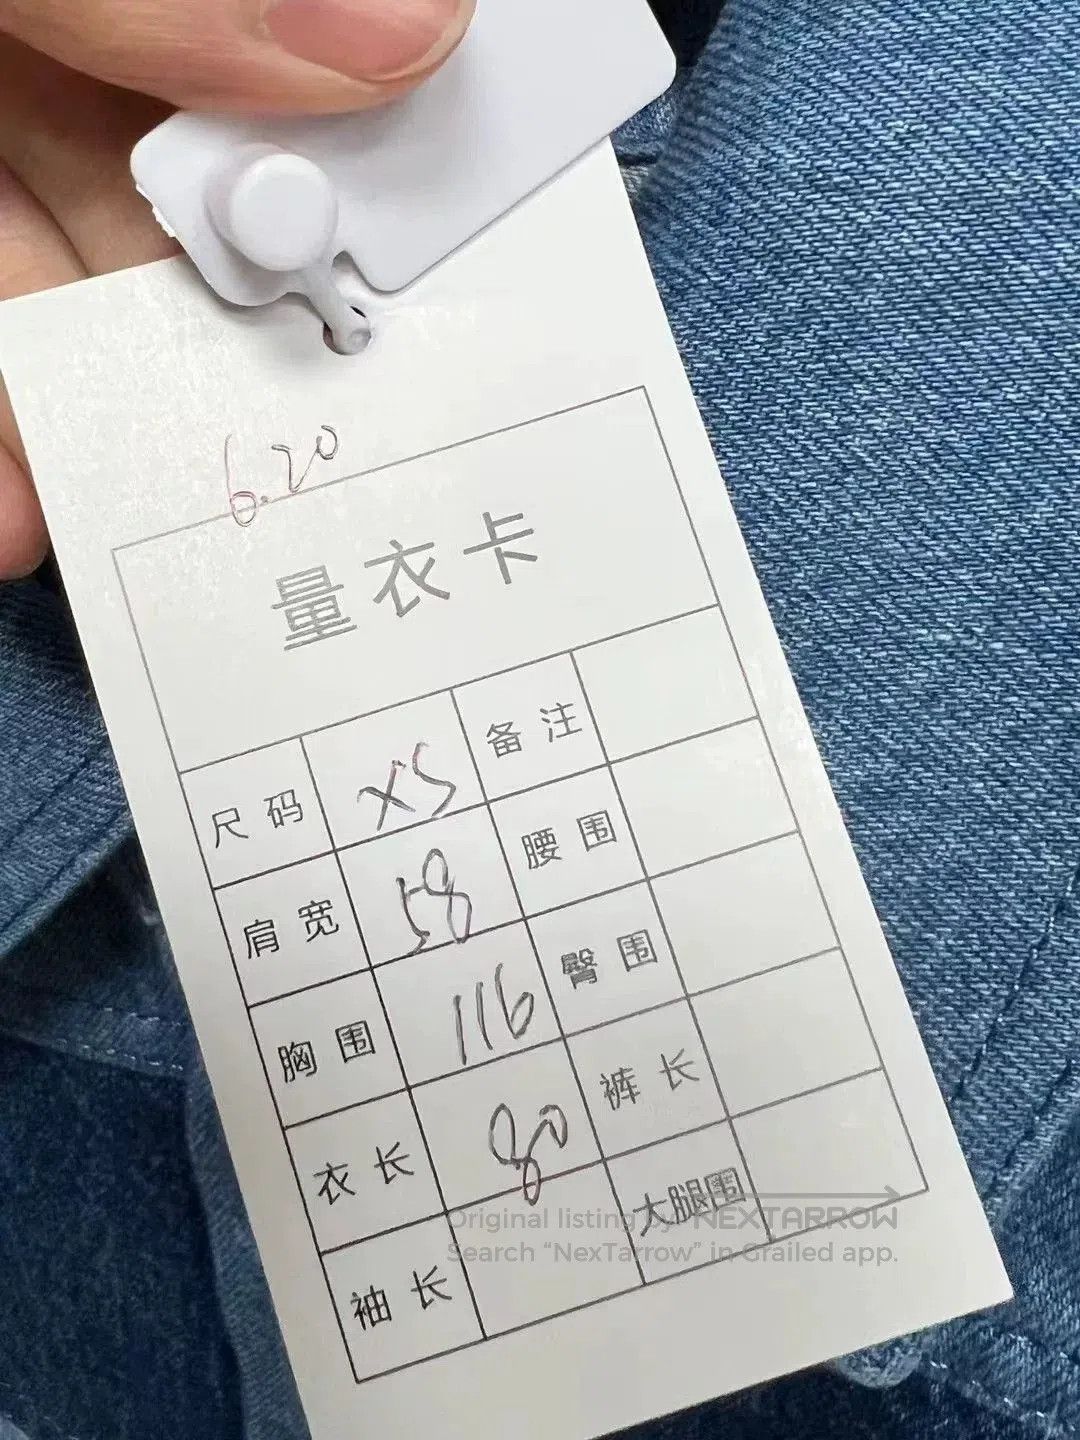 6.20
量衣卡
尺码 XS 备注
肩宽 58 腰围
胸围 116 臀围
衣长 80 裤长
袖长 大腿围
Original listing by NEXTARROW
Search “NexTarrow” in Grailed app.